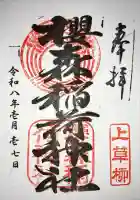 奉拝
上草柳
櫻森稲荷神社
令和八年壱月壱七日